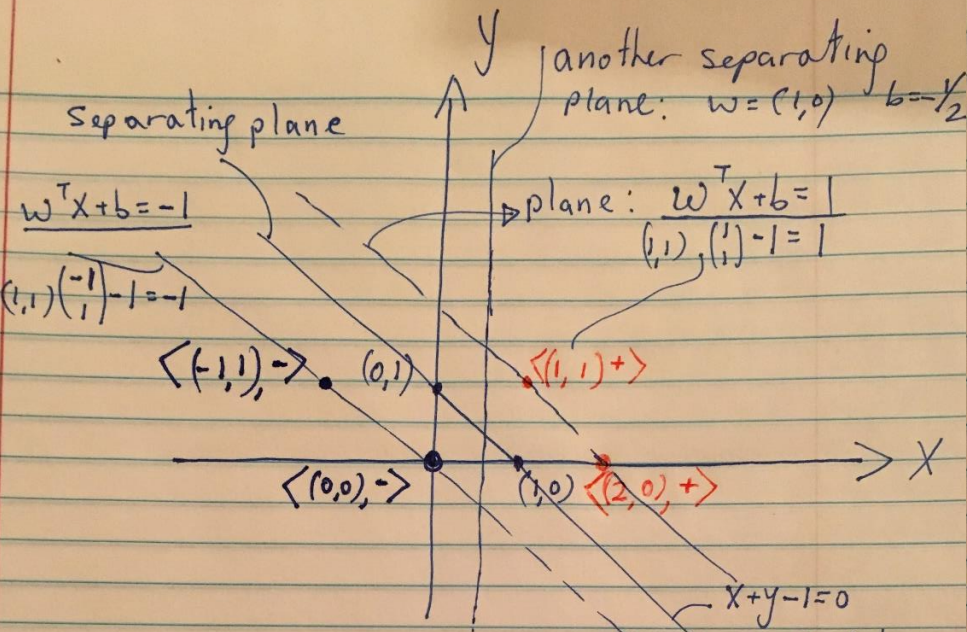 y
another separating
plane: w = (1,0) b=-1/2
Separating plane
wᵀx+b=-1
plane: wᵀx+b=1
(1,1) . (1 1) -1 = 1
(1,1) (-1 1) -1 = -1
<(-1,1), ->
(0,1)
<(1,1) +>
x
<(0,0), ->
(1,0)
<(2,0), +>
x+y-1=0